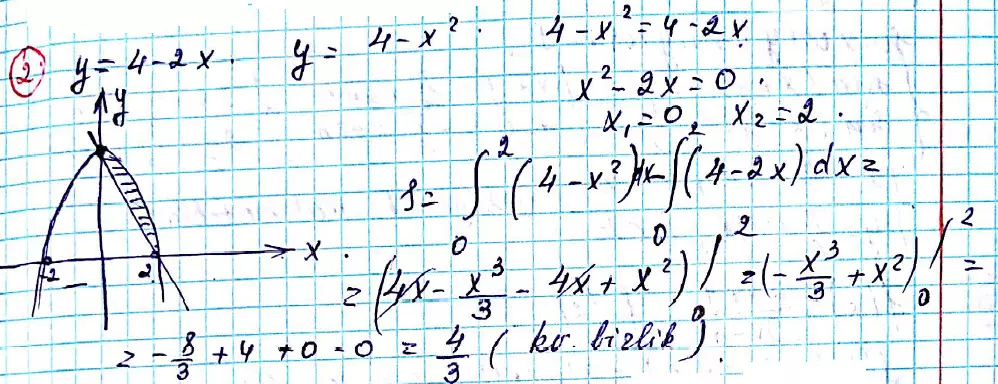 2 y = 4 - 2x. y = 4 - x². 4 - x² = 4 - 2x.
x² - 2x = 0.
x₁ = 0, x₂ = 2.
y
S = ∫₀² (4 - x²)dx - ∫₀² (4 - 2x) dx =
-2 2 x
= (4x - x³/3 - 4x + x²) |₀² = (-x³/3 + x²) |₀² =
= -8/3 + 4 + 0 - 0 = 4/3 (kv. birlik).